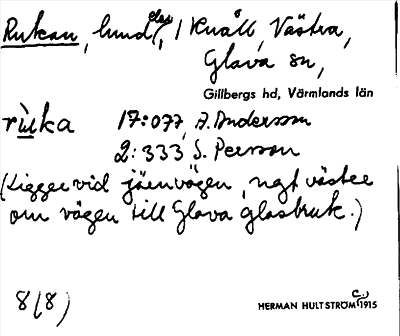 Rukan, lund, / Knåll, Västra,
Glava sn,
Gillbergs hd, Värmlands län
rùka 17:077, A. Andersson
2:333 S. Persson
(Ligger vid järnvägen, ngt väster
om vägen till Glava glasbruk.)
8(8)
HERMAN HULTSTRÖM C. 1915